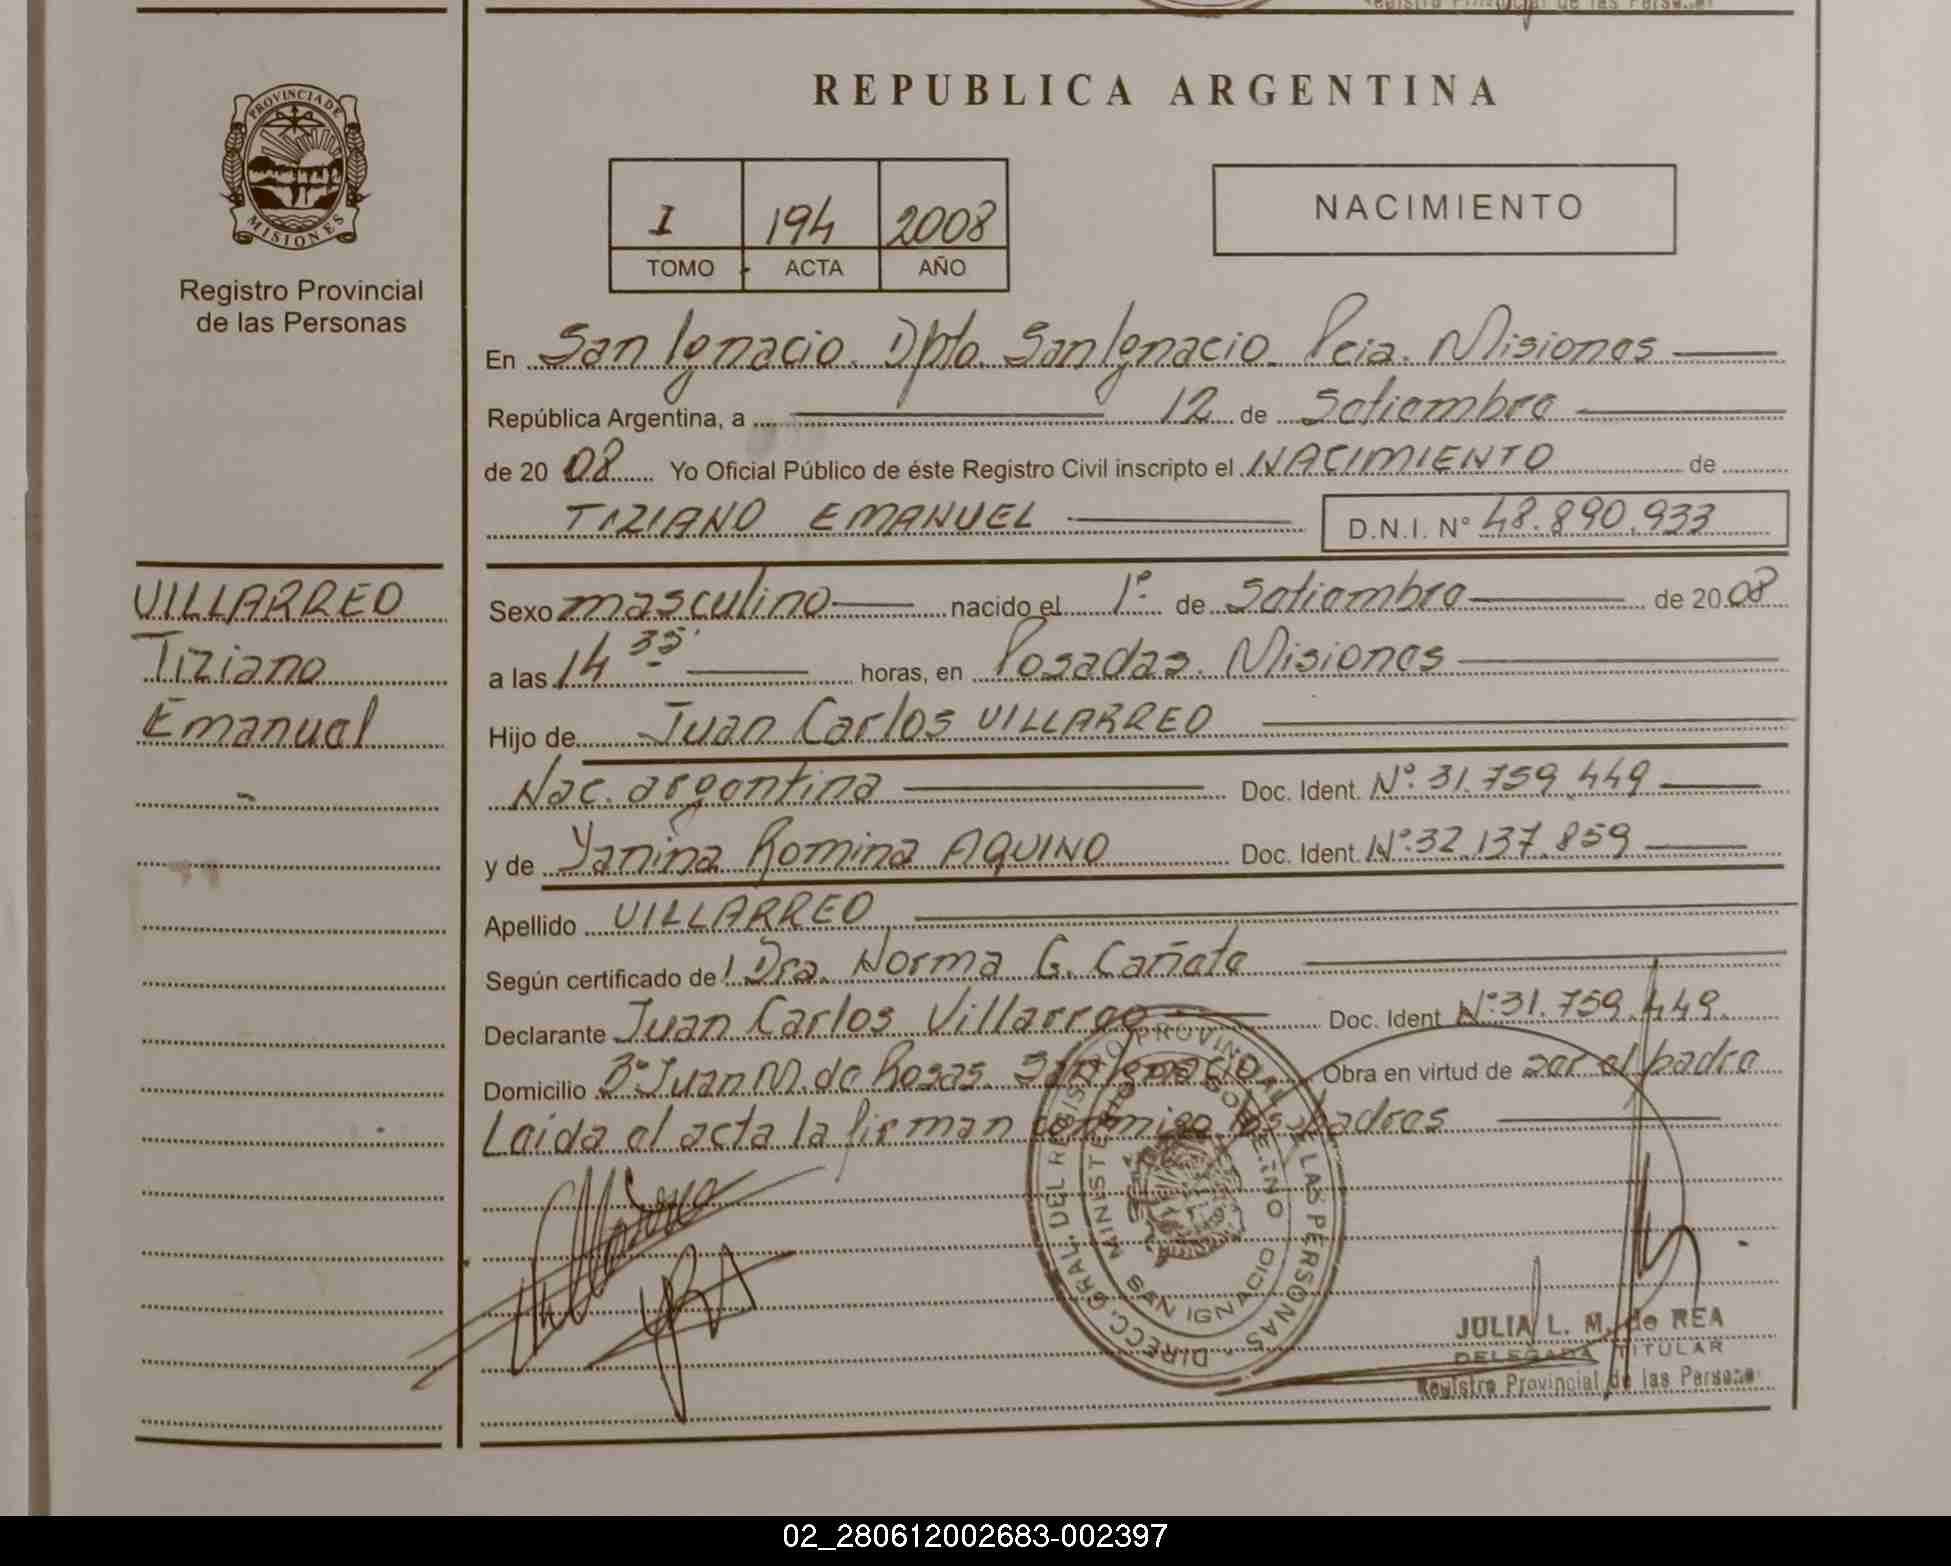 REPUBLICA ARGENTINA
PROVINCIA DE
MISIONES
Registro Provincial
de las Personas
I 194 2008
TOMO ACTA AÑO
NACIMIENTO
En San Ignacio. Dpto. San Ignacio. Pcia. Misiones
República Argentina, a 12 de Setiembre
de 20 08 Yo Oficial Público de éste Registro Civil inscripto el NACIMIENTO de
TIZIANO EMANUEL D.N.I. N° 48.890.933
VILLARREO
Tiziano
Emanuel
Sexo masculino nacido el 1° de Setiembre de 20 08
a las 14 35' horas, en Posadas. Misiones
Hijo de Juan Carlos VILLARREO
Nac. argentina Doc. Ident. N°. 31.759.449
y de Yanina Romina AQUINO Doc. Ident. N°. 32.137.859
Apellido VILLARREO
Según certificado de Dra. Norma G. Cañete
Declarante Juan Carlos Villarreo Doc. Ident N° 31.759.449.
Domicilio B° Juan M. de Rosas. San Ignacio. Obra en virtud de ser el padre
Leida el acta la firman conmigo los padres
DIRECC. GRAL. DEL REGISTRO PROVINCIAL DE LAS PERSONAS
MINISTERIO DE GOBIERNO
SAN IGNACIO
JULIA L. M. de REA
DELEGADA TITULAR
Registro Provincial de las Personas
02_280612002683-002397